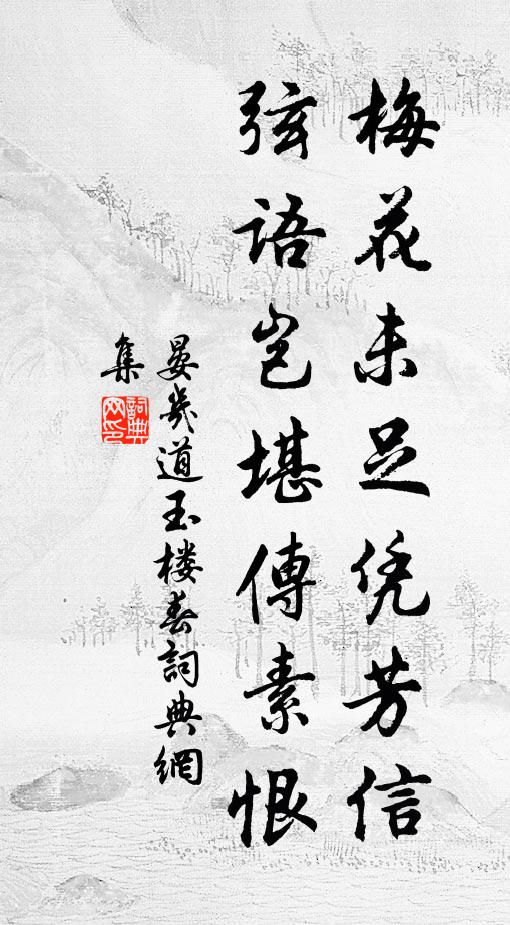 梅花未足凭芳信
弦语岂堪傳素恨
晏幾道玉楼春詞典網
集
詞典
网印